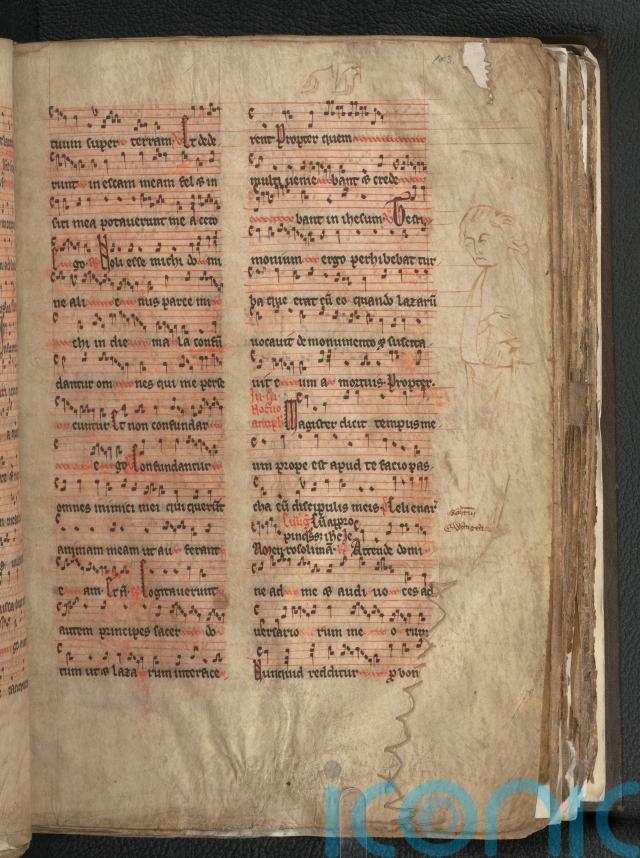 103
tuum super terram Et dede
runt in escam meam fel & in
siti mea potaverunt me aceto
Ergo Noli esse michi do mi
ne ali e nus parce mi
chi in die ma la confu
dantur om nes qui me perse
cuntur Et non confundar
e go Confundantur
omnes inimici mei qui querunt
animam meam ut au ferant
e am Cogitaverunt
autem principes sacer do
tum ut & laza rum interfice
rent Propter quem
multi venie bant & crede
bant in ihesum Testi
monium ergo perhibebat tur
ba que erat cu eo quando lazaru
vocavit de monumento & suscita
vit e um a mortuis Propter
Magister dicit tempus me
um prope est apud te facio pas
cha cu discipulis meis
Cu appro
pinqss ihs Je
rosolima Attende domi
ne ad me & audi vo ces ad
versario rum me o rum
Nunquid redditur p bon
iconic